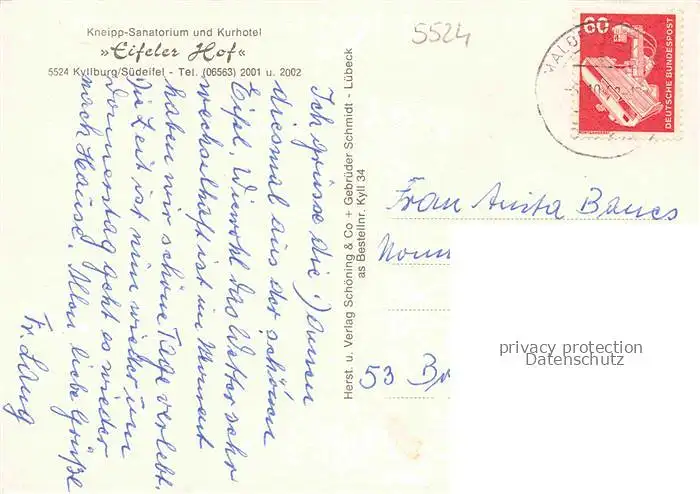 Kneipp-Sanatorium und Kurhotel
»Eifeler Hof«
5524 Kyllburg/Südeifel - Tel. (06563) 2001 u. 2002
5524
60
DEUTSCHE BUNDESPOST
Ich grüsse die Damen
diesmal aus der schönen
Eifel. Wiewohl das Wetter sehr
wechselhaft ist im Moment
haben wir schöne Tage verlebt.
Die Zeit ist nun wieder um
Donnerstag geht es wieder
nach Hause. Also liebe Grüße
Fr. Lang
Herst. u. Verlag Schöning & Co + Gebrüder Schmidt - Lübeck
as Bestellnr. Kyll 34
Frau Anita
53
privacy protection
Datenschutz